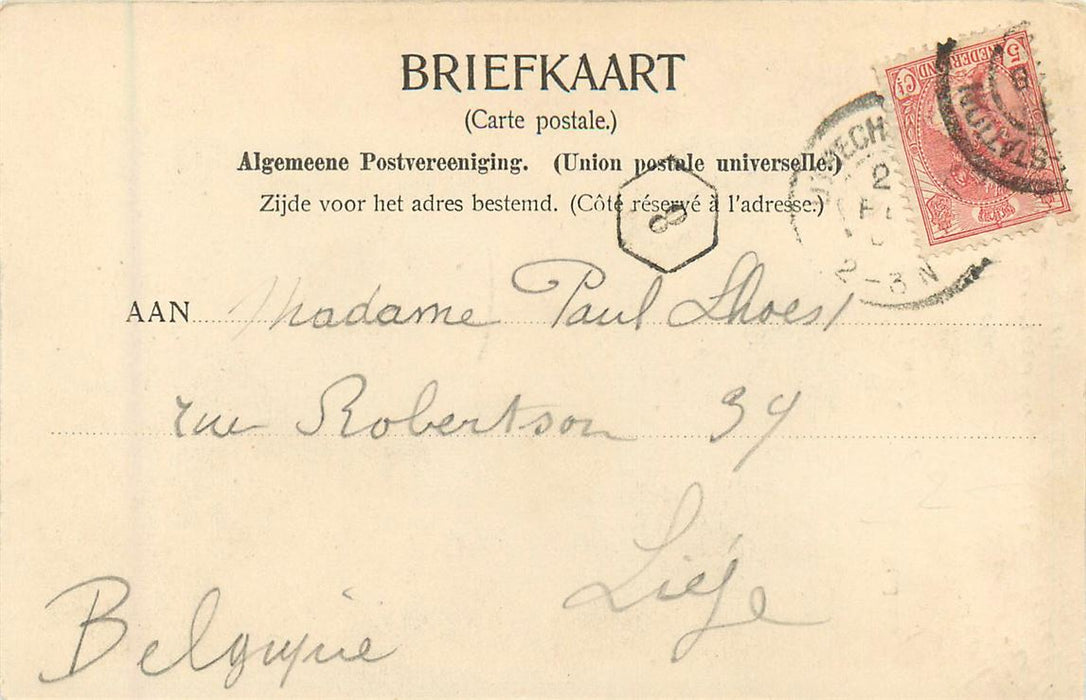 BRIEFKAART
(Carte postale.)
Algemeene Postvereeniging. (Union postale universelle.)
Zijde voor het adres bestemd. (Côté réservé à l'adresse.)
8
5 Ct NEDERLAND
STATION
UTRECH
2
2-3 N
AAN Madame Paul Lhoest
rue Robertson 39
Liége
Belgique